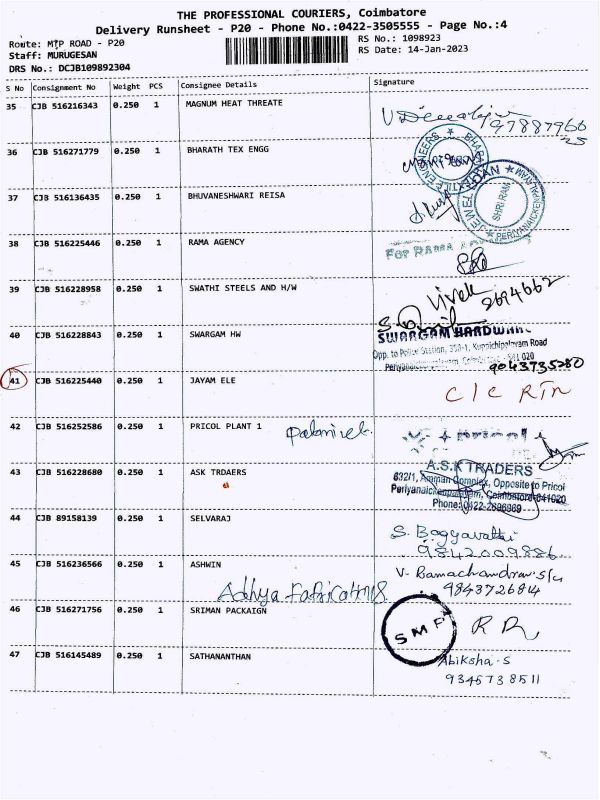 THE PROFESSIONAL COURIERS, Coimbatore
Delivery Runsheet - P20 - Phone No.:0422-3505555 - Page No.:4
Route: MTP ROAD - P20
RS No.: 1098923
Staff: MURUGESAN
RS Date: 14-Jan-2023
DRS No.: DCJB109892304
S No Consignment No Weight PCS Consignee Details Signature
35 CJB 516216343 0.250 1 MAGNUM HEAT THREATE
36 CJB 516271779 0.250 1 BHARATH TEX ENGG
37 CJB 516136435 0.250 1 BHUVANESHWARI REISA
SHRI RAM
38 CJB 516225446 0.250 1 RAMA AGENCY
FOR RAMA
39 CJB 516228958 0.250 1 SWATHI STEELS AND H/W
Vivek
2694662
40 CJB 516228843 0.250 1 SWARGAM HW
SWARGAM HARDWARE
Opp. to Police Station,
9043735280
41 CJB 516225440 0.250 1 JAYAM ELE C/C RTN
42 CJB 516252586 0.250 1 PRICOL PLANT 1 Palanivel. pricol
43 CJB 516228680 0.250 1 ASK TRDAERS
A.S.K TRADERS
632/1, Amman Complex, Opposite to Pricol
Periyanaickenpalayam, Coimbatore-641020
44 CJB 89158139 0.250 1 SELVARAJ
S. Bagyavathi
9842009886
45 CJB 516236566 0.250 1 ASHWIN
V. Ramachandran S/c
9843726814
Adhya Fabrications
46 CJB 516271756 0.250 1 SRIMAN PACKAIGN
SMP
47 CJB 516145489 0.250 1 SATHANANTHAN
Abiksha-S
9345738511